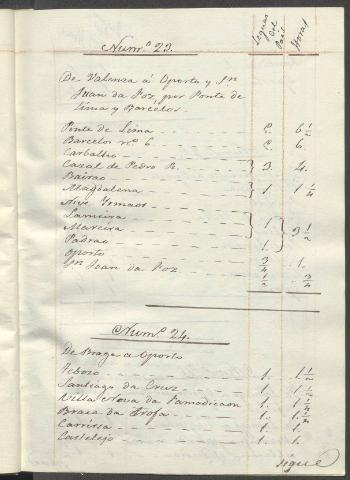 Leguas del Pais
Horas
Num.º 23.
De Valenza á Oporto y Sn
Juan da Foz por Ponte de
Lima y Barcelos.
Ponte de Lima 6 1/2
Barcelos nº 6 6.
Carbalho
Cazal de Pedro R. 3. 4.
Bairao
Magdalena 1 1 1/4
Lameira
Moreira 1 3 1/2
Padrao
Oporto 1.
Sn Juan da Foz 3/4 1.
1/2 3/4
Num.º 24.
De Braga a Oporto
1. 1 1/2
Santiago da Cruz 1.
Villa Nova da Famadicaon 1.
Braza da Trofa 1.
Carrisa 1. 1.
Castelejo 1. 1.
sigue